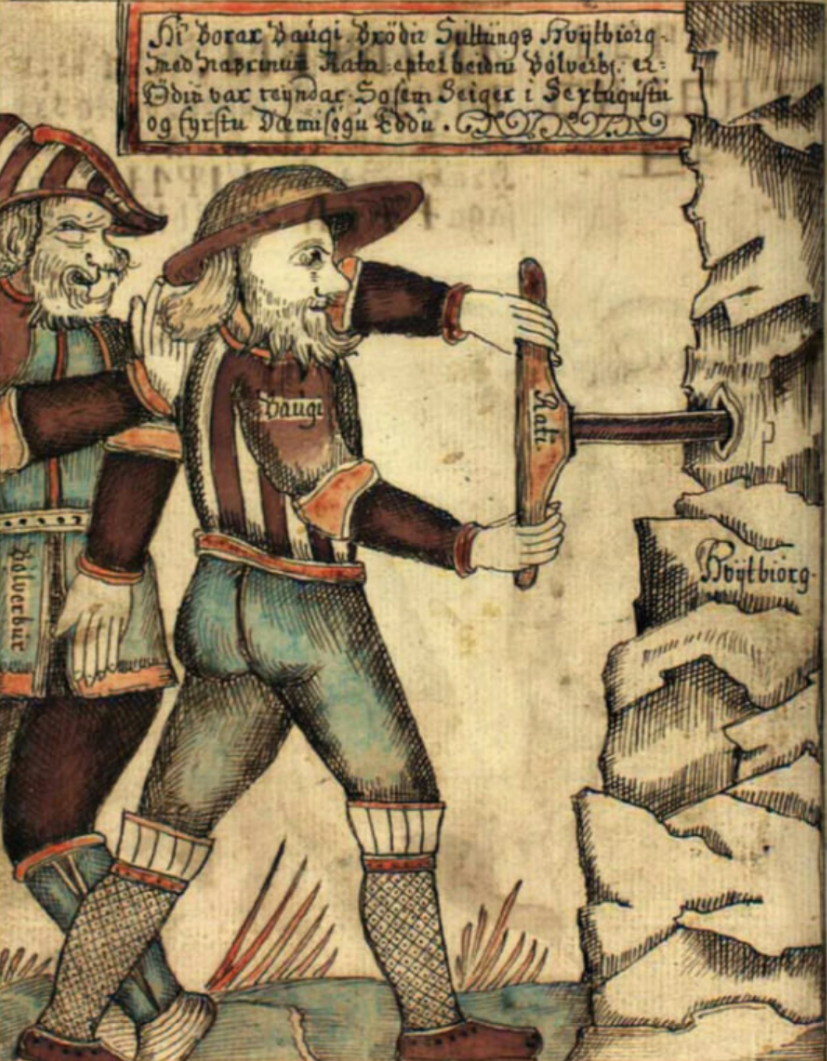 Hi Borar Baugi Brödir Suttungs Hvijtbiörg
med nafrinum Rata epter beidni Bölverks. er
Ödin var reyndar. So sem Seiger i Sextugustu
og fyrstu Dæmisögu Eddu.
Baugi
Rati
Hvijtbiörg.
Bölverkur